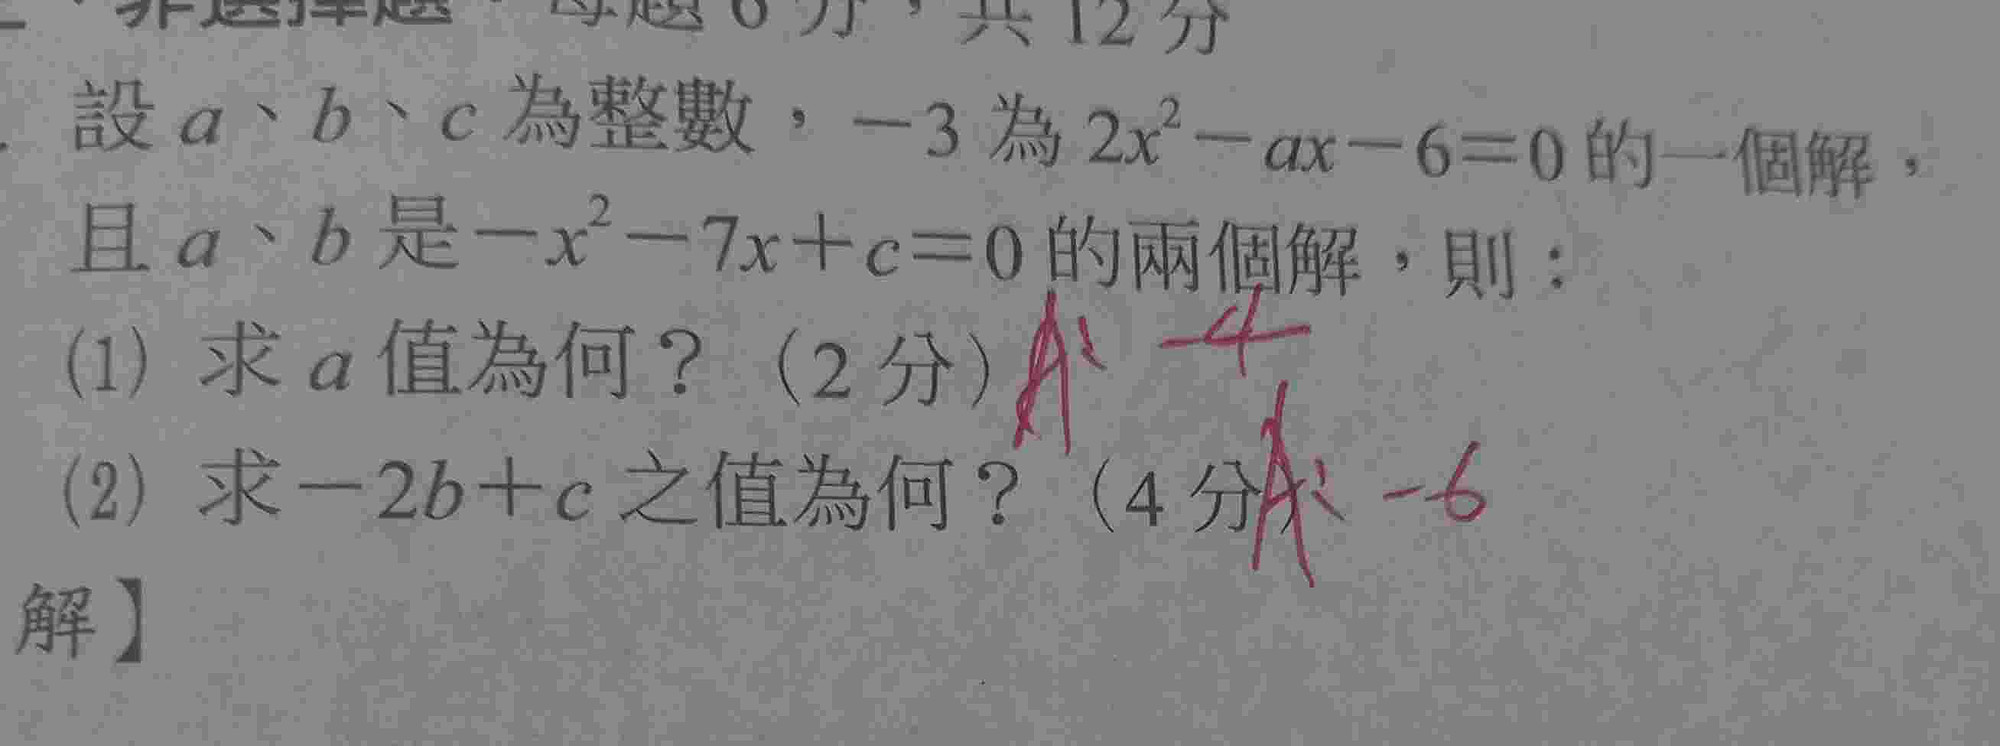 、非選擇題：每題6分，共12分
設a、b、c為整數，−3為2x²−ax−6=0的一個解，
且a、b是−x²−7x+c=0的兩個解，則：
(1) 求a值為何？（2分）A: -4
(2) 求−2b+c之值為何？（4分）A: -6
解】